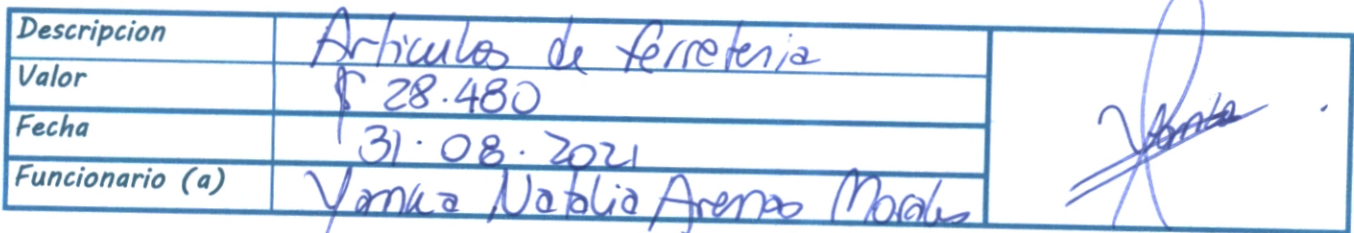 Descripcion Articulos de ferreteria
Valor $ 28.480
Fecha 31.08.2021
Funcionario (a) Yanka Natalia Arenas Morales
Yanka